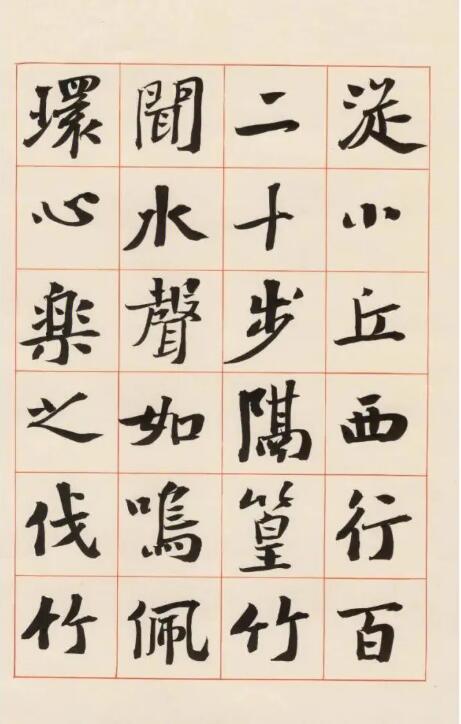 從小丘西行百
二十步隔篁竹
聞水聲如鳴佩
環心樂之伐竹